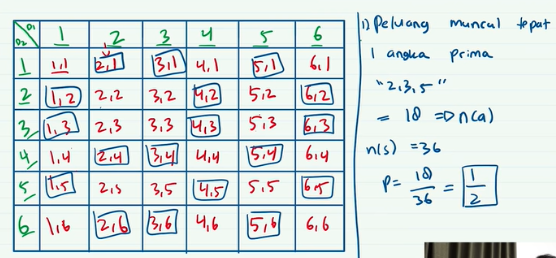 D1 1 2 3 4 5 6
D2
1 1,1 2,1 3,1 4,1 5,1 6,1
2 1,2 2,2 3,2 4,2 5,2 6,2
3 1,3 2,3 3,3 4,3 5,3 6,3
4 1,4 2,4 3,4 4,4 5,4 6,4
5 1,5 2,5 3,5 4,5 5,5 6,5
6 1,6 2,6 3,6 4,6 5,6 6,6
1) Peluang muncul tepat
1 angka prima
"2,3,5"
= 18 => n(a)
n(s) = 36
P = 18/36 = 1/2